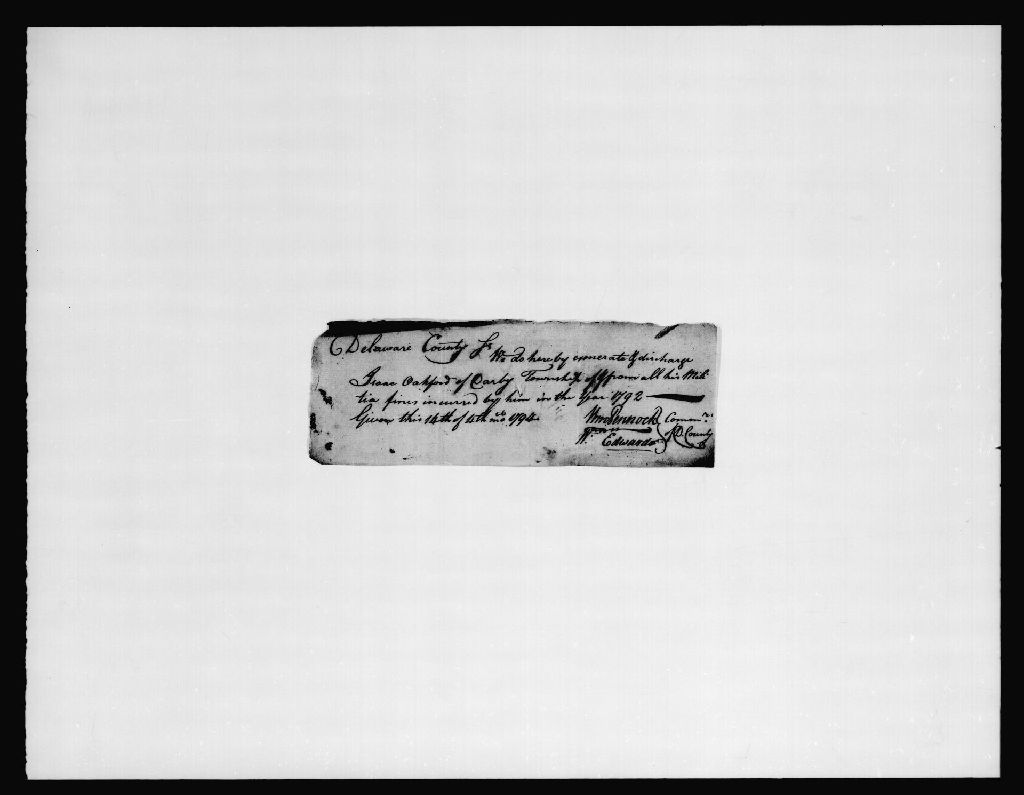 Delaware County Ss
We do hereby exonerate & discharge
Isaac Oakford of Darby Township off from all his Mili
tia fines incurred by him in the Year 1792
Given this 14th of 4th mo 1794
Wm Pennock
Wm Edwards
Commrs
of D. County